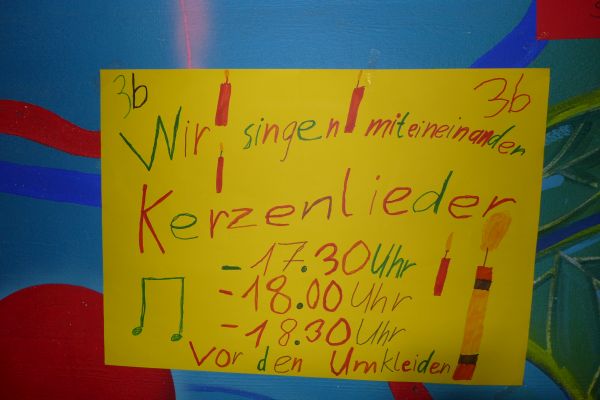 3b 3b
Wir singen miteineinander
Kerzenlieder
- 17.30 Uhr
- 18.00 Uhr
- 18.30 Uhr
vor den Umkleiden